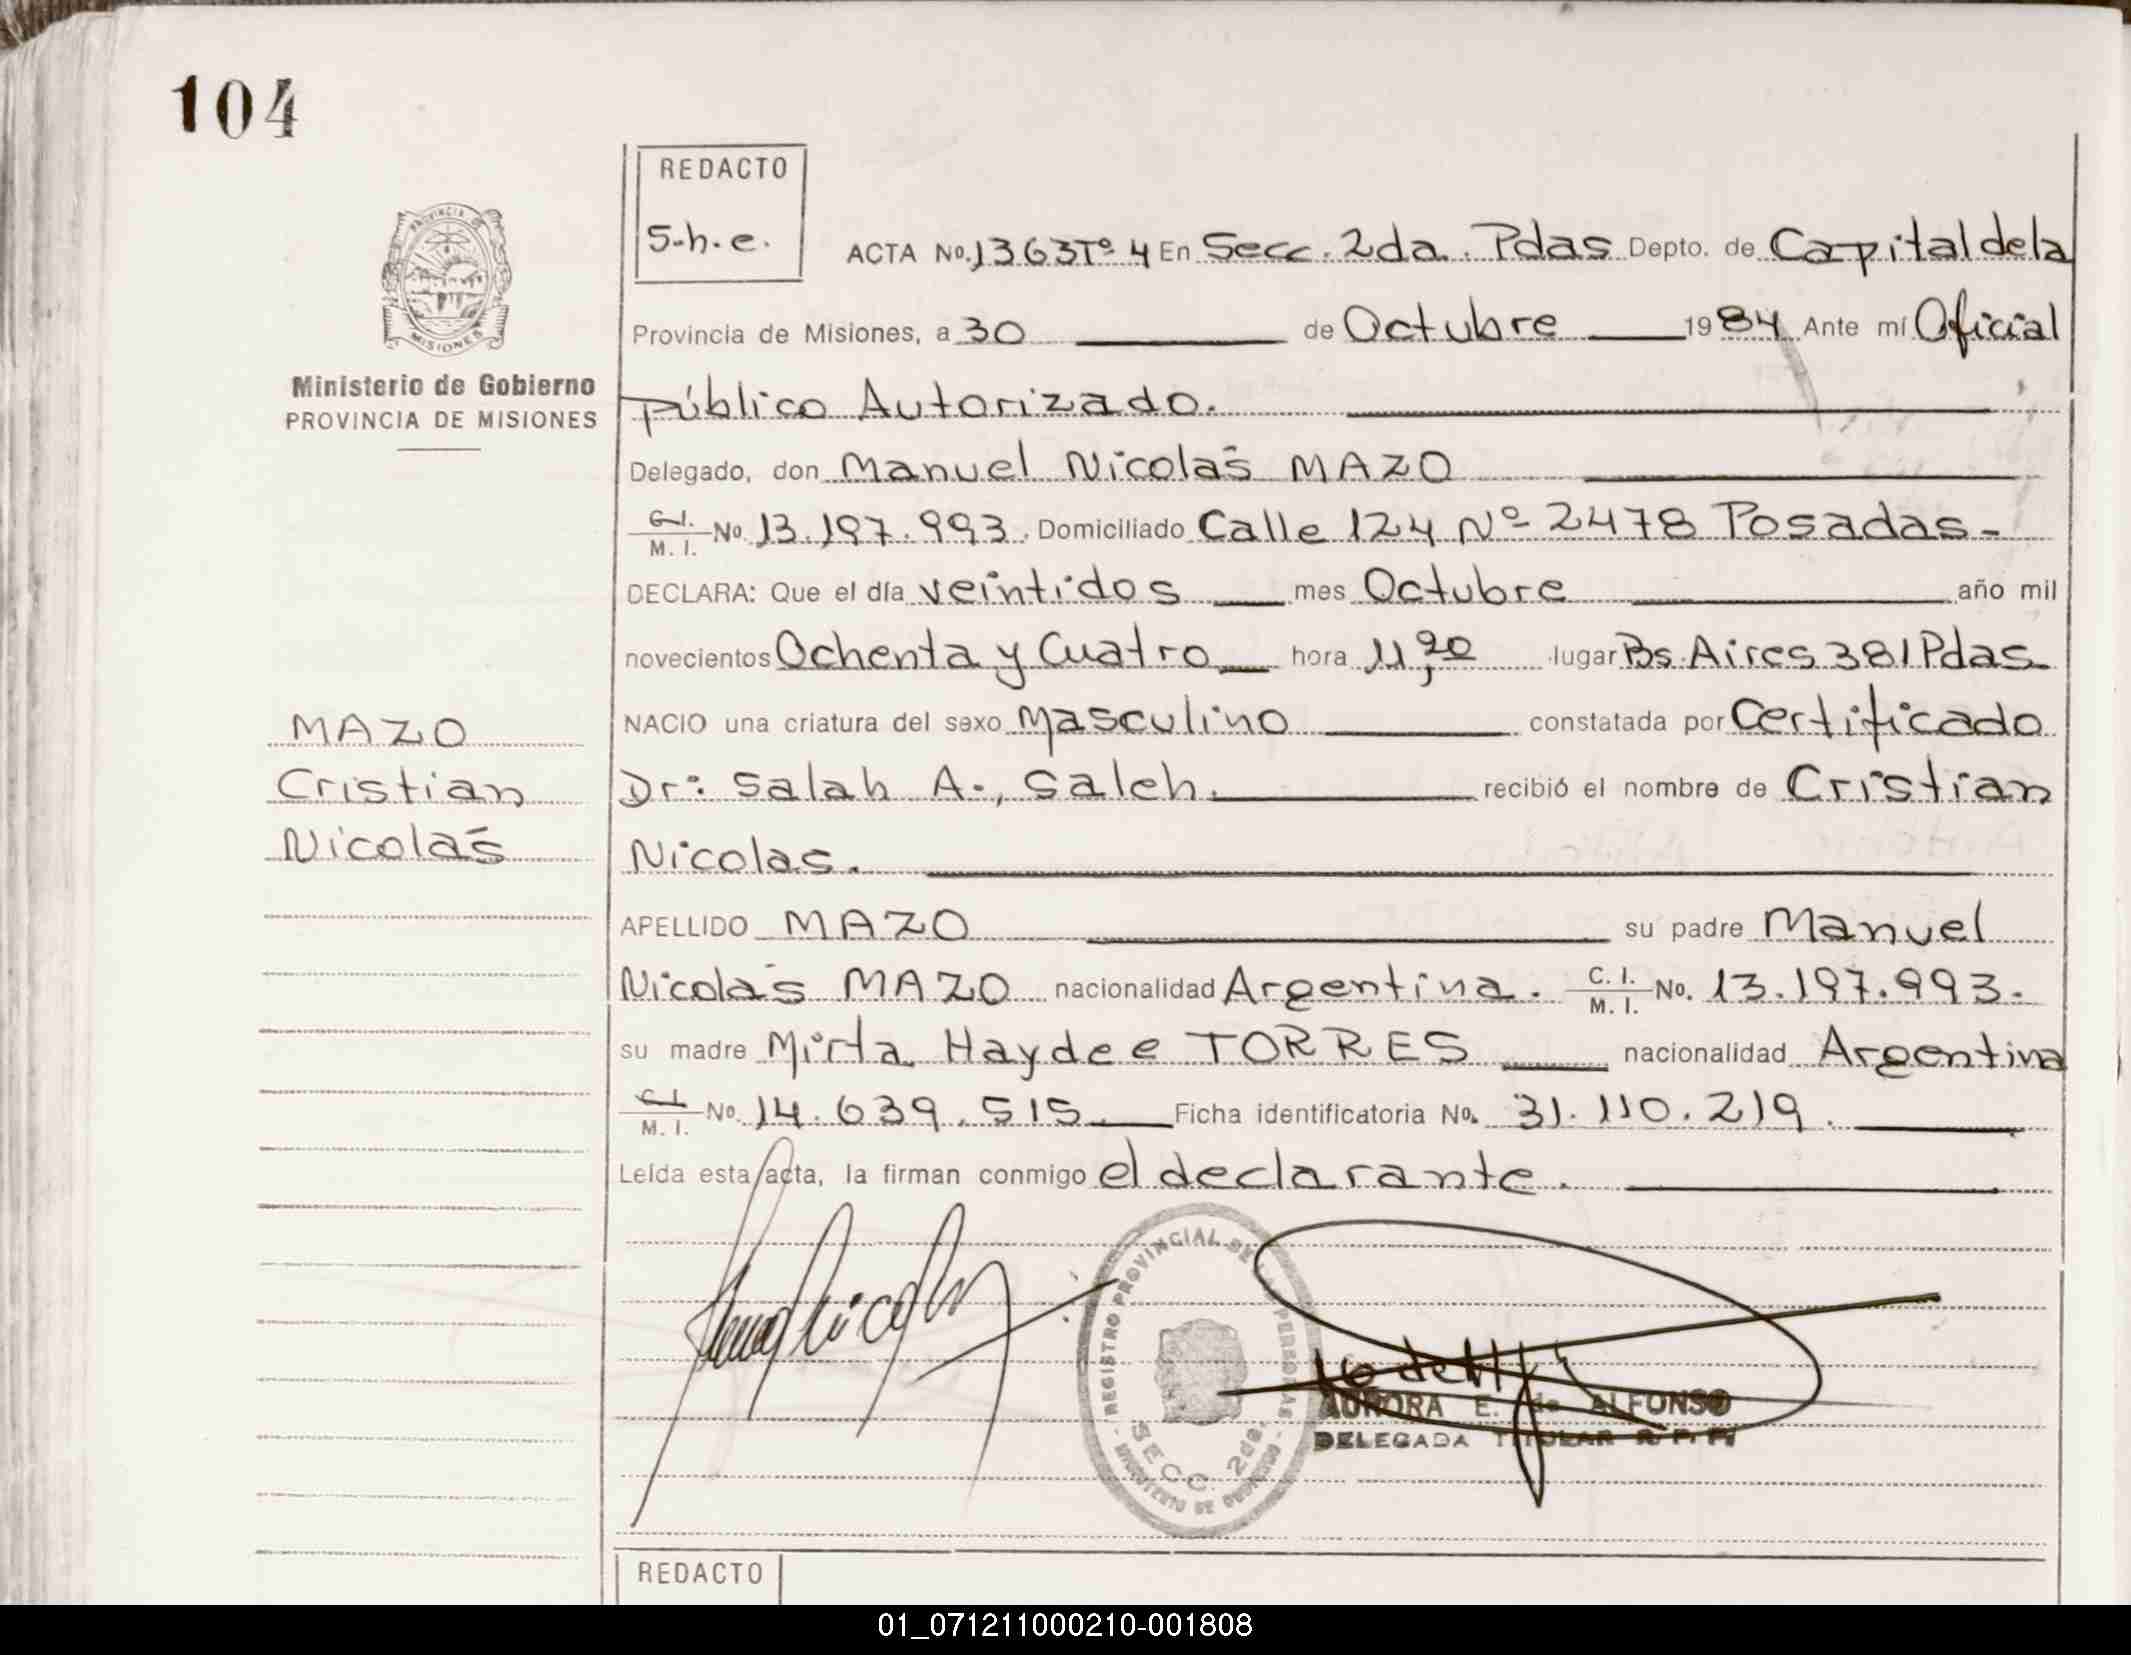 104
REDACTO
S.h.e.
ACTA No. 1363 Tº 4 En Secc. 2da. Pdas Depto. de Capital de la
Provincia de Misiones, a 30 de Octubre 1984 Ante mí Oficial
público Autorizado.
PROVINCIA DE
MISIONES
Ministerio de Gobierno
PROVINCIA DE MISIONES
Delegado, don Manuel Nicolás MAZO
C.I.
M. I. No. 13.197.993. Domiciliado Calle 124 Nº 2478 Posadas-
DECLARA: Que el día veintidos mes Octubre año mil
novecientos Ochenta y Cuatro hora 11,20 lugar Bs. Aires 381 Pdas
MAZO
Cristian
Nicolás
NACIO una criatura del sexo Masculino constatada por Certificado
Dr: Salah A., Saleh. recibió el nombre de Cristian
Nicolas.
APELLIDO MAZO su padre Manuel
Nicolás MAZO nacionalidad Argentina. C. I.
M. I. No. 13.197.993.
su madre Mirta Haydee TORRES nacionalidad Argentina
C.I.
M. I. No. 14.639.515. Ficha identificatoria No. 31.110.219.
Leída esta acta, la firman conmigo el declarante.
REGISTRO PROVINCIAL DE PERSONAS
SECC. 2da.
AURORA E. de ALFONSO
DELEGADA TITULAR R. P. P.
REDACTO
01_071211000210-001808